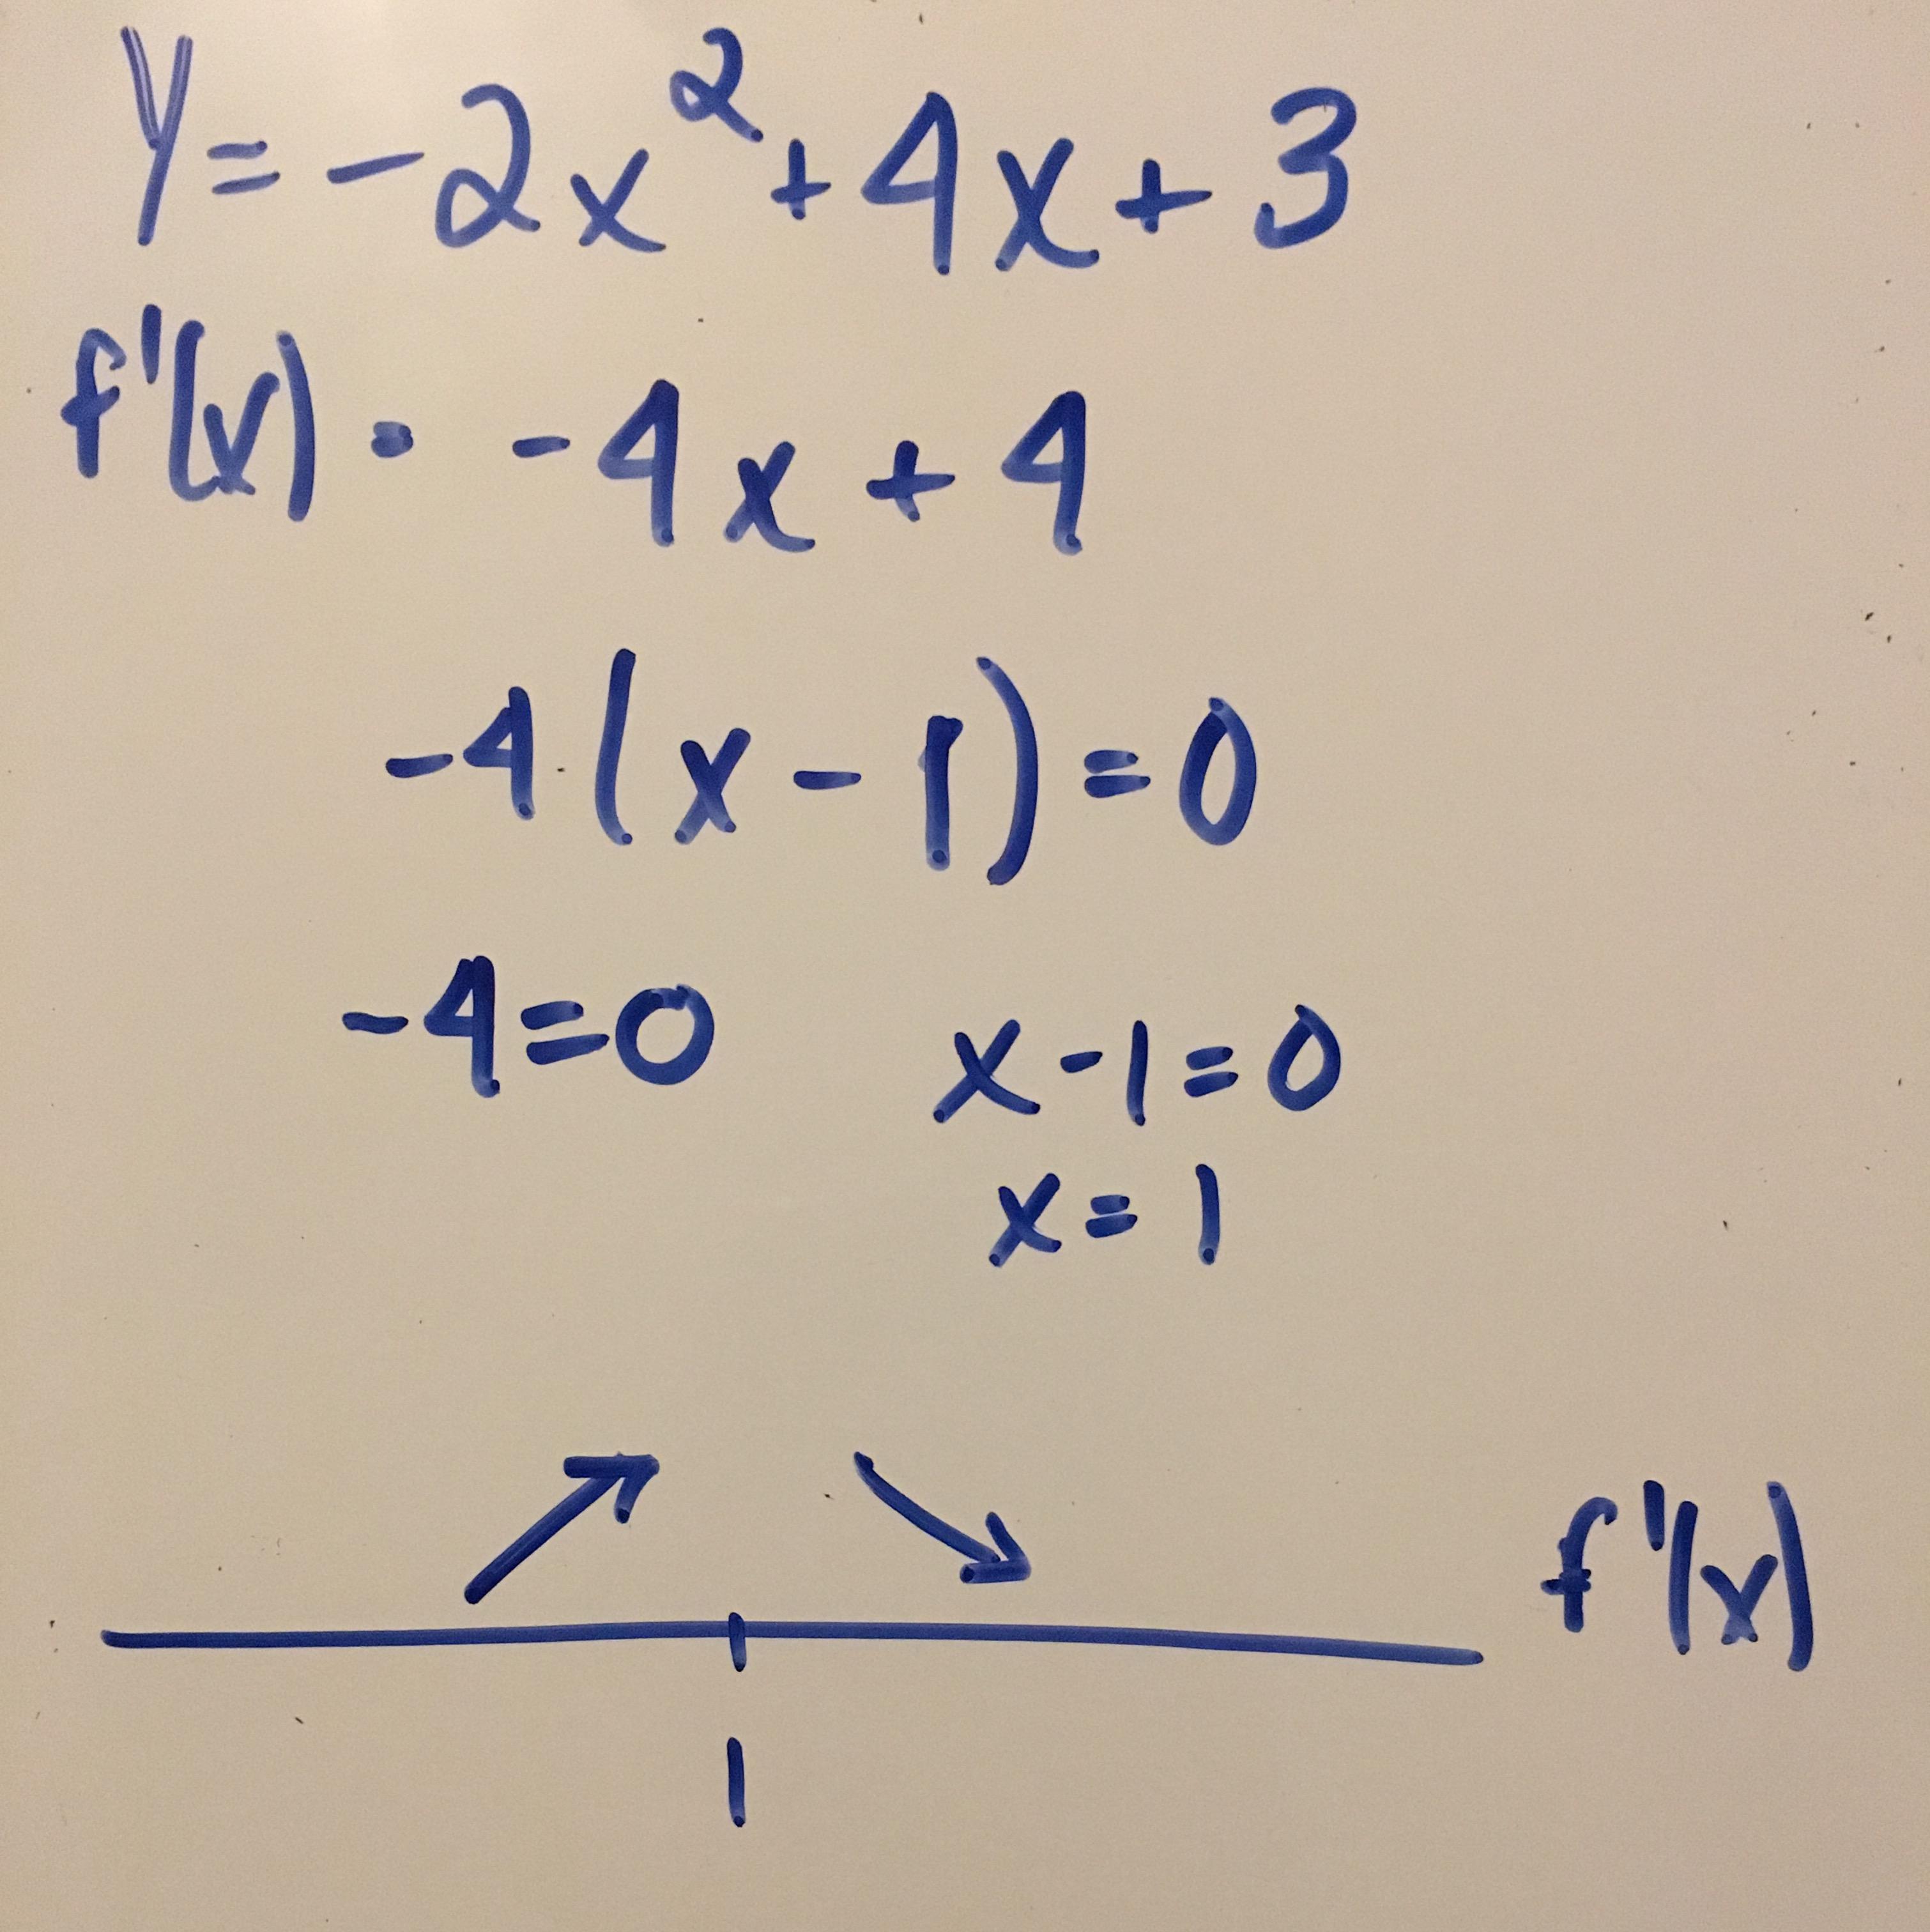 Y = -2x² + 4x + 3
f'(x) = -4x + 4
-4(x - 1) = 0
-4 = 0 x - 1 = 0
x = 1
f'(x)
1